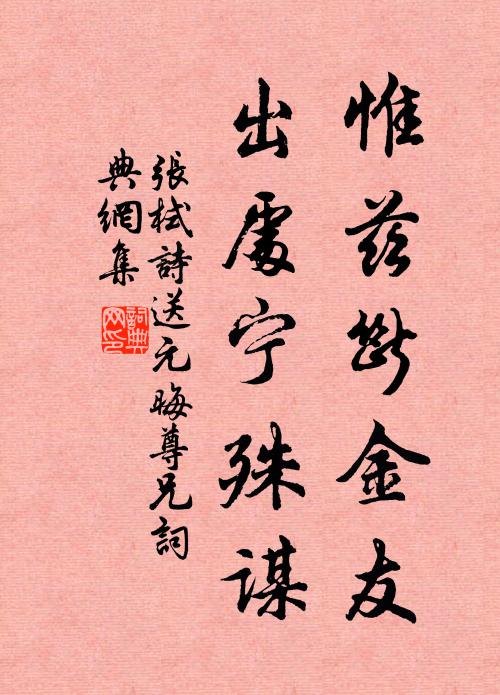 惟兹斷金友
出處宁殊謀
張栻詩送元晦尊兄詞
典網集
詞典
网印